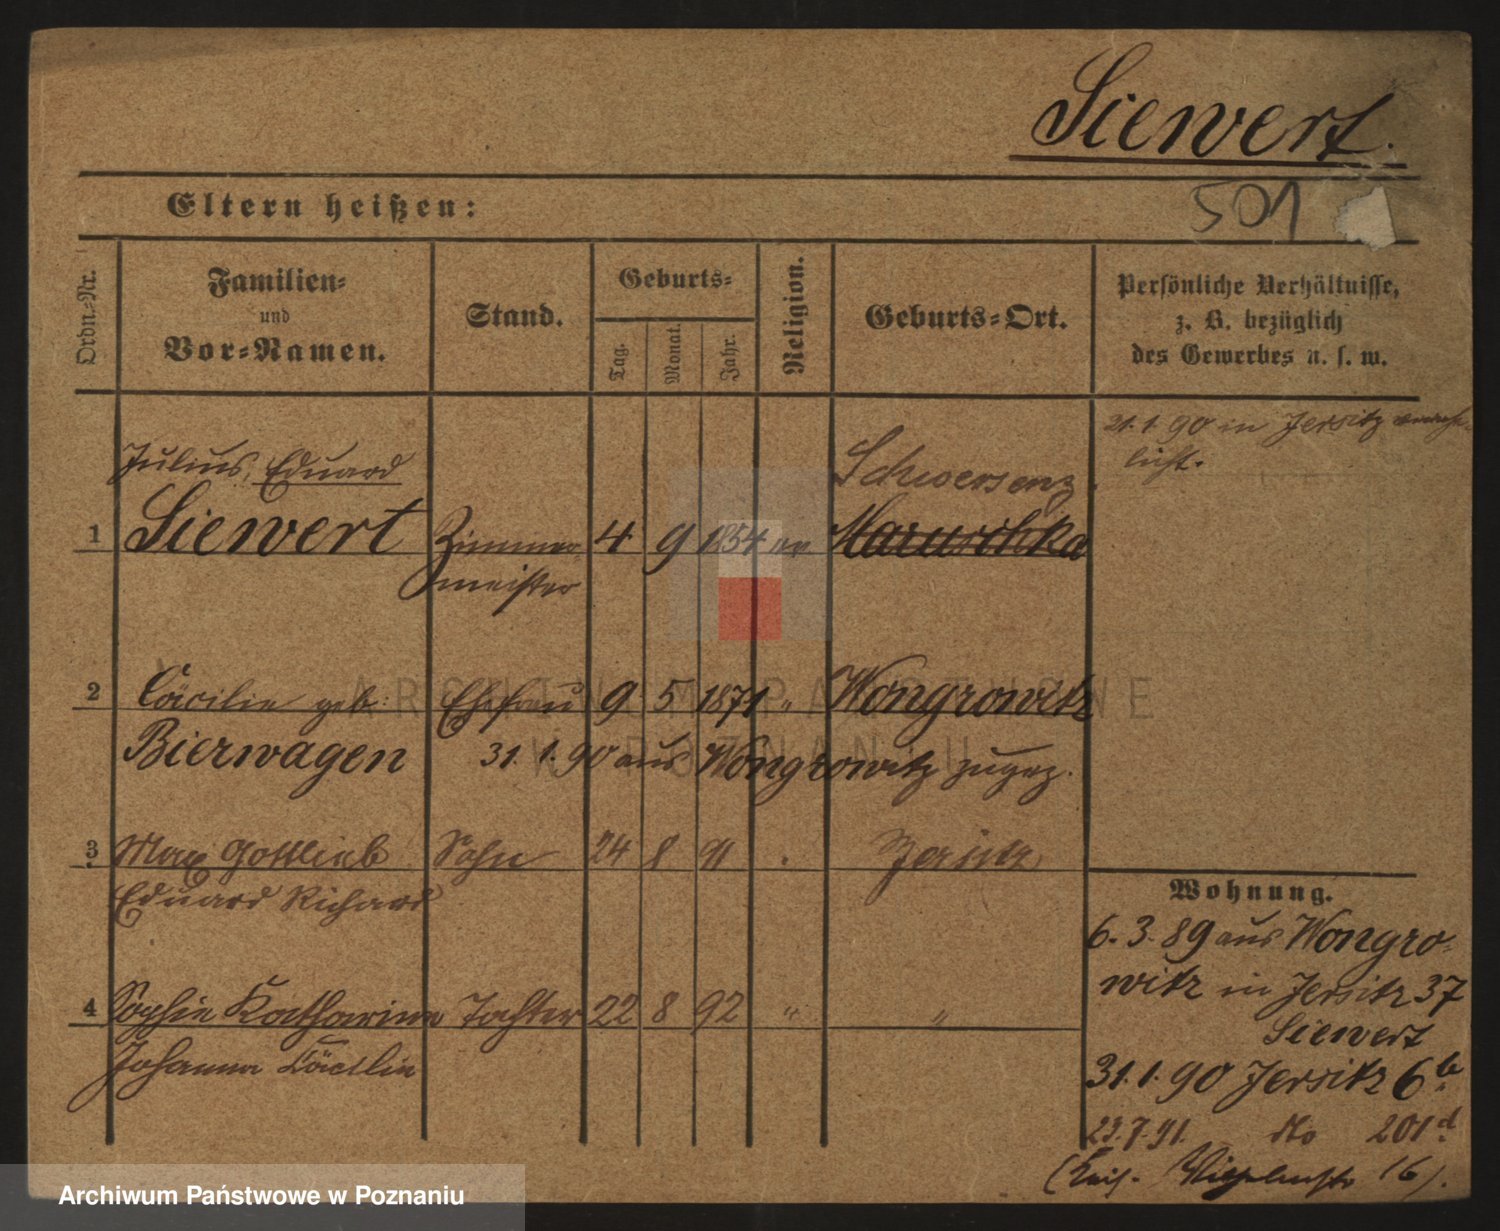 Siewert.
501
Eltern heißen:
Ordn.-Nr.
Familien-
und
Vor-Namen.
Stand.
Geburts-
Tag.
Monat.
Jahr.
Religion.
Geburts-Ort.
Persönliche Verhältnisse,
z. B. bezüglich
des Gewerbes u. s. w.
21.1.90 in Jersitz verehe-
licht.
Julius, Eduard
Schwersenz
1 Siewert Zimmer 4 9 1854 ev Maruschka
meister
2 Cäcilie geb. Ehefrau 9 5 1871 " Wongrowitz
Bierwagen 31. 1. 90 aus Wongrowitz zugez.
3 Max Gottlieb Sohn 24 8 91 Jersitz
Eduard Richard
4 Sophie Katharina Tochter 22 8 92 " "
Johanna Cäcilie
Wohnung.
6. 3. 89 aus Wongro-
witz in Jersitz 37
Siewert
31. 1. 90 Jersitz 6b
23.7.91. do 201d
(Kais. Wilhelmstr 16).
ARCHIWUM PAŃSTWOWE
W POZNANIU
Archiwum Państwowe w Poznaniu